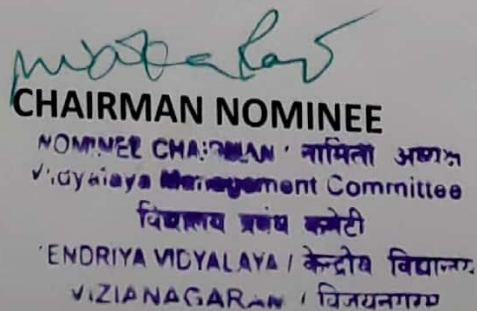 CHAIRMAN NOMINEE
NOMINEE CHAIRMAN / नामिती अध्यक्ष
Vidyalaya Management Committee
विद्यालय प्रबंध कमेटी
KENDRIYA VIDYALAYA / केन्द्रीय विद्यालय
VIZIANAGARAM / विजयनगरम